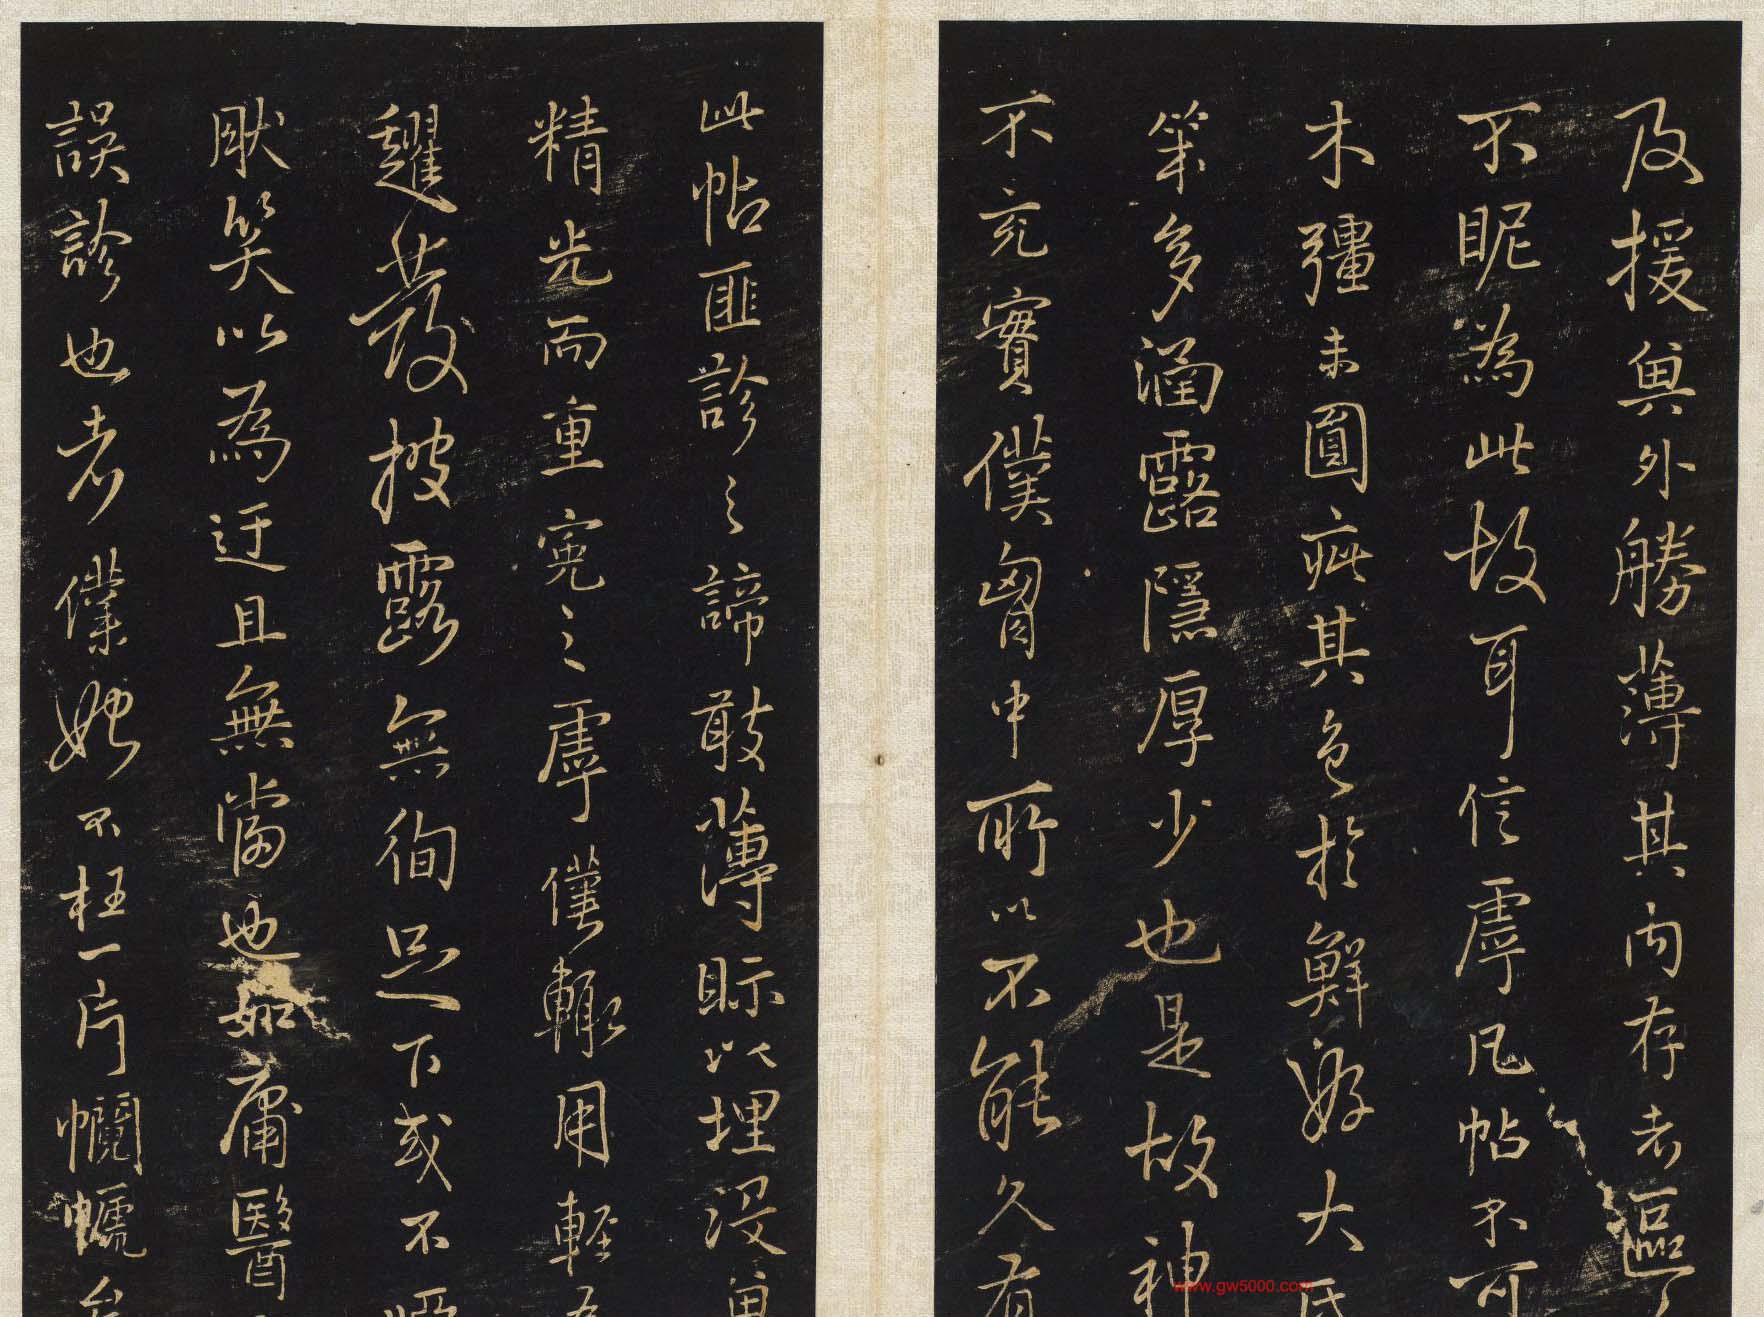 及援與外勝薄其内存者區了
不昵為此故耳信虖凡帖不可
木彊未圓疵其色於鮮好大氐
策多涵露隱厚少也是故神
不充實僕匈胷中所以不能久有
此帖匪診之諦敢薄眎以埋没
精光而重寃之虖僅輙用輕
趯發披露無徇足下或不
猒笑以為迂且無當也如庸醫
誤診也者僕始不枉一片
www.gw5000.com